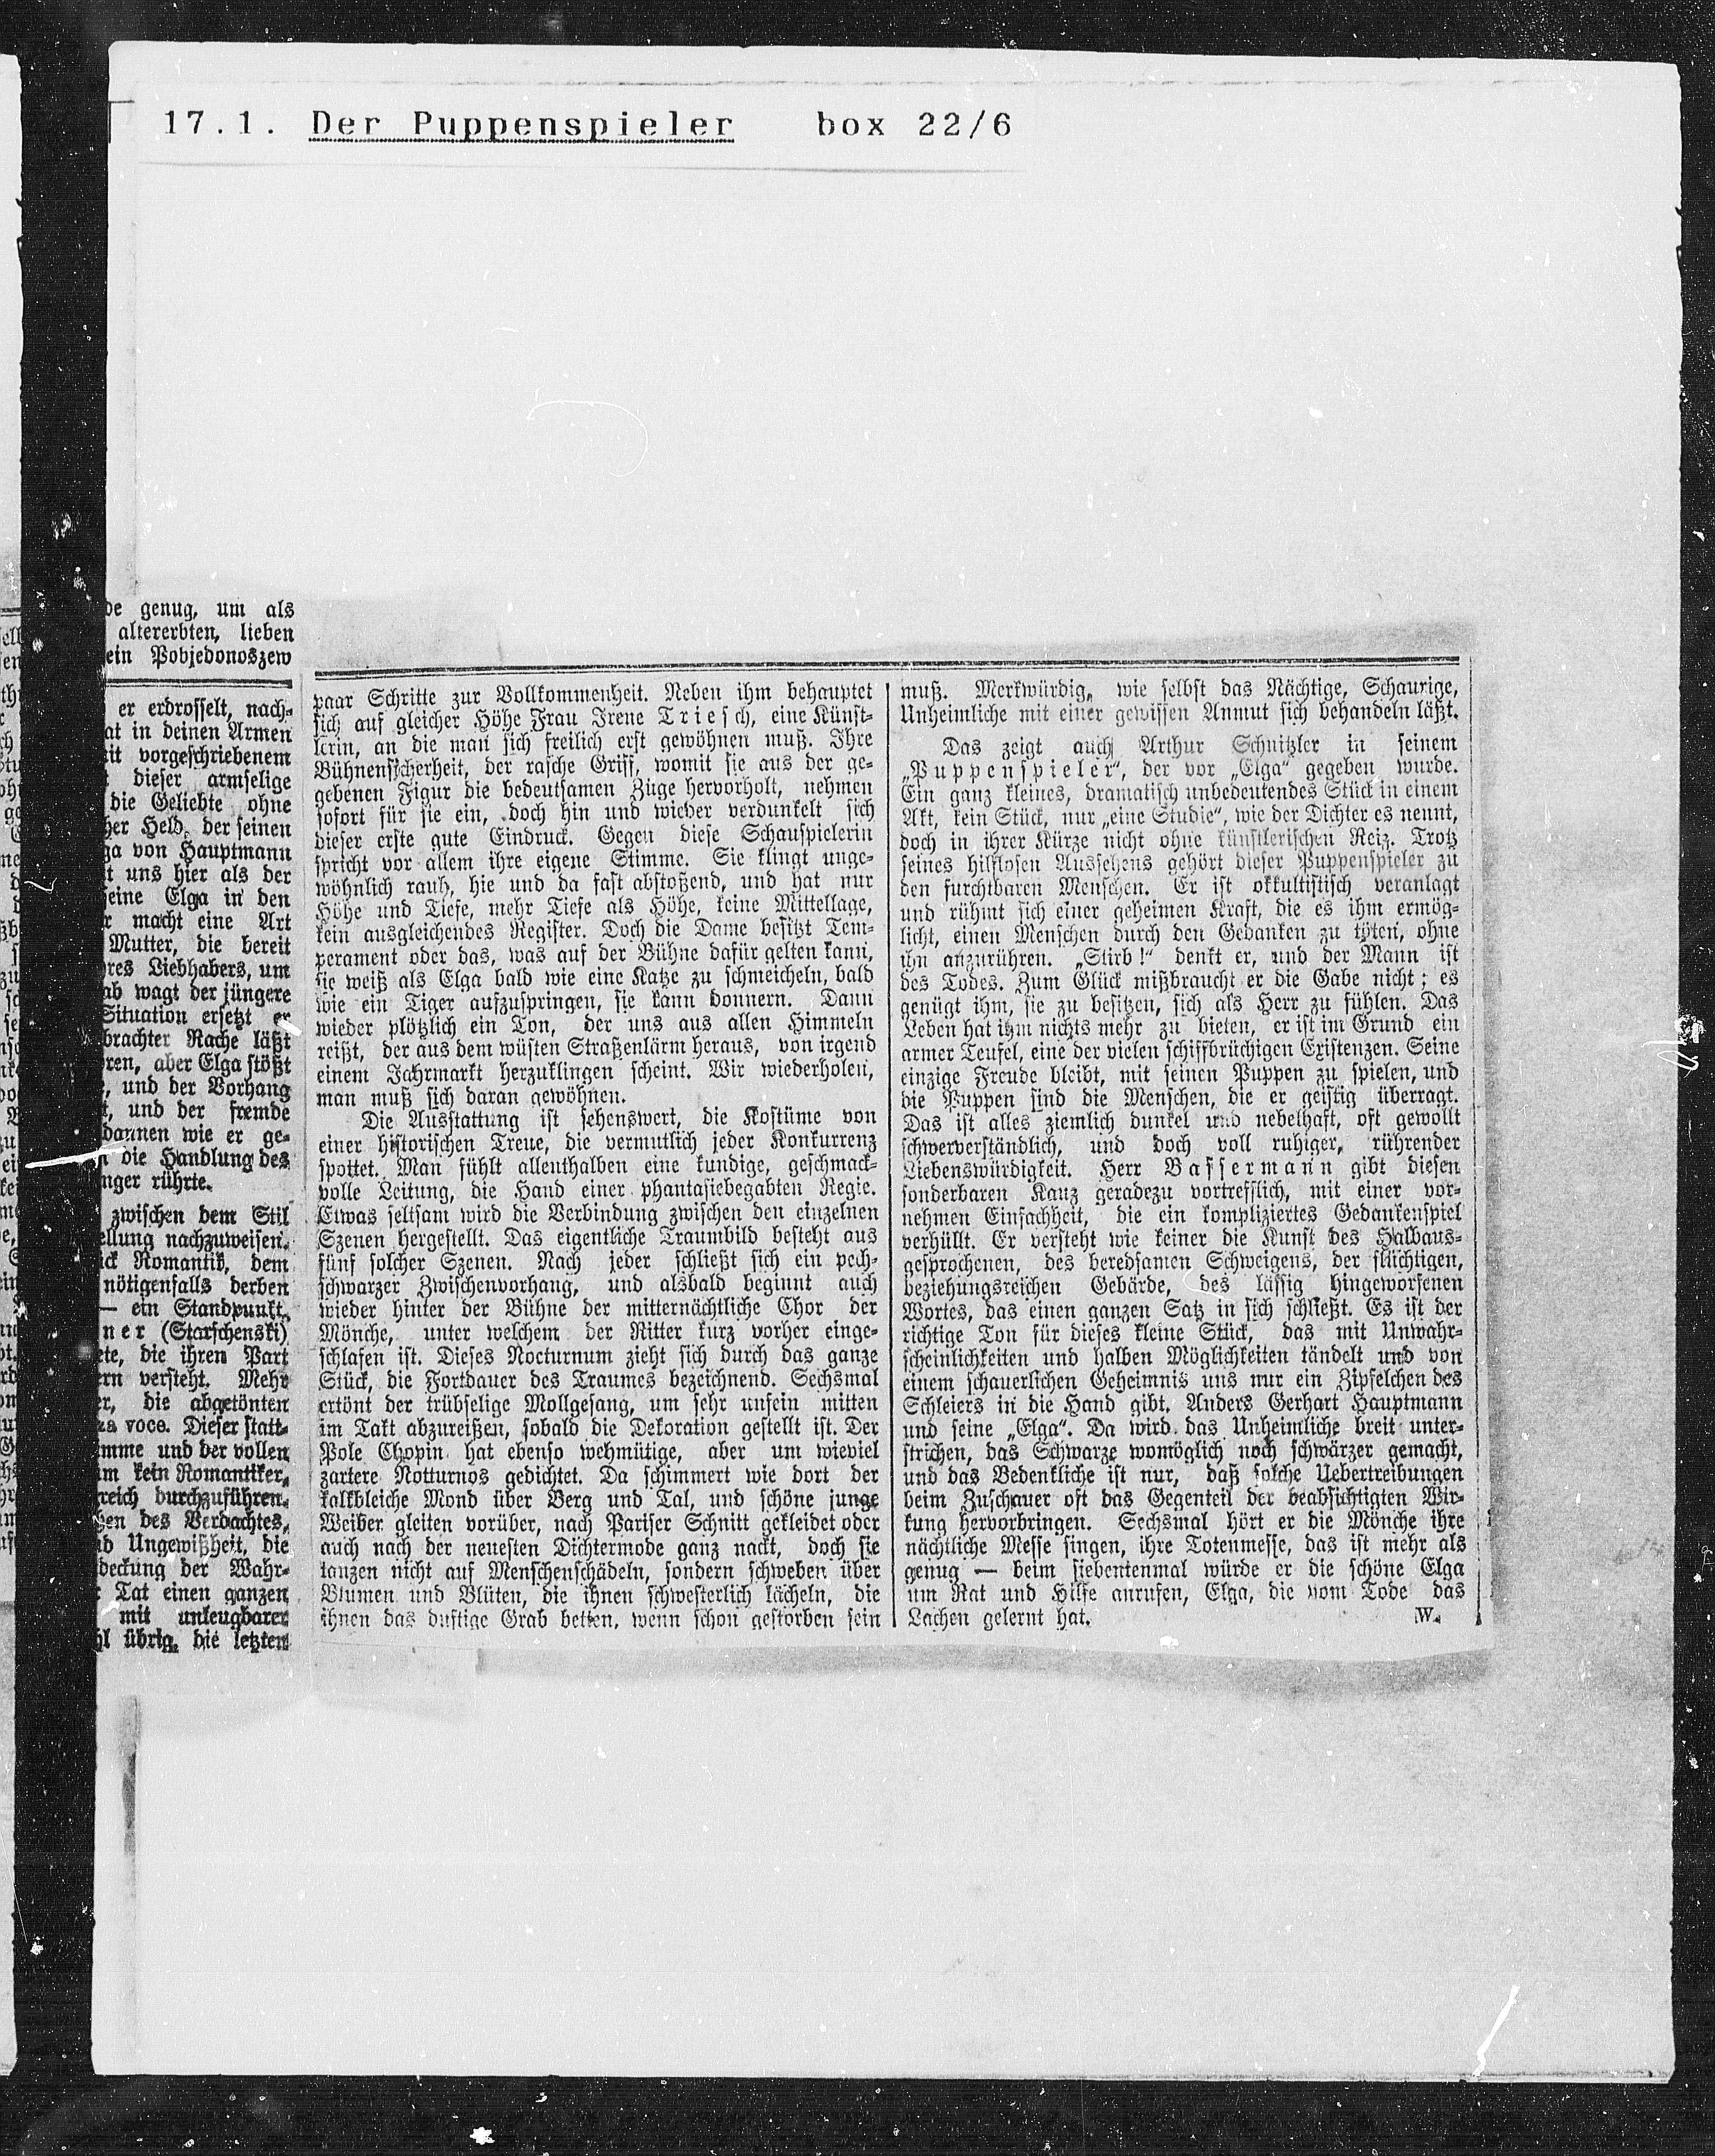 17.1. Der Puppenspieler box 22/6
de genug, um als
altererbten, lieben
ein Pobjedonoszew
er erdrosselt, nach-
at in deinen Armen
it vorgeschriebenem
dieser armselige
die Geliebte ohne
her Held, der seinen
ga von Hauptmann
t uns hier als der
seine Elga in den
r macht eine Art
Mutter, die bereit
res Liebhabers, um
ab wagt der jüngere
Situation ersetzt er
brachter Rache läßt
ren, aber Elga stößt
, und der Vorhang
t, und der fremde
dannen wie er ge-
n die Handlung des
nger rührte.
zwischen dem Stil
ellung nachzuweisen.
ick Romantik, dem
nötigenfalls derben
— ein Standpunkt,
ner (Starschenski)
ete, die ihren Part
ern versteht. Mehr
er, die abgetönten
za voce. Dieser statt-
imme und der vollen
um kein Romantiker,
greich durchzuführen.
gen des Verdachtes,
nd Ungewißheit, die
deckung der Wahr-
r Tat einen ganzen
mit unleugbarer
hl übrig, die letzten
paar Schritte zur Vollkommenheit. Neben ihm behauptet
sich auf gleicher Höhe Frau Irene Triesch, eine Künst-
lerin, an die man sich freilich erst gewöhnen muß. Ihre
Bühnensicherheit, der rasche Griff, womit sie aus der ge-
gebenen Figur die bedeutsamen Züge hervorholt, nehmen
sofort für sie ein, doch hin und wieder verdunkelt sich
dieser erste gute Eindruck. Gegen diese Schauspielerin
spricht vor allem ihre eigene Stimme. Sie klingt unge-
wöhnlich rauh, hie und da fast abstoßend, und hat nur
Höhe und Tiefe, mehr Tiefe als Höhe, keine Mittellage,
kein ausgleichendes Register. Doch die Dame besitzt Tem-
perament oder das, was auf der Bühne dafür gelten kann,
sie weiß als Elga bald wie eine Katze zu schmeicheln, bald
wie ein Tiger aufzuspringen, sie kann donnern. Dann
wieder plötzlich ein Ton, der uns aus allen Himmeln
reißt, der aus dem wüsten Straßenlärm heraus, von irgend
einem Jahrmarkt herzuklingen scheint. Wir wiederholen,
man muß sich daran gewöhnen.
Die Ausstattung ist sehenswert, die Kostüme von
einer historischen Treue, die vermutlich jeder Konkurrenz
spottet. Man fühlt allenthalben eine kundige, geschmack-
volle Leitung, die Hand einer phantasiebegabten Regie.
Etwas seltsam wird die Verbindung zwischen den einzelnen
Szenen hergestellt. Das eigentliche Traumbild besteht aus
fünf solcher Szenen. Nach jeder schließt sich ein pech-
schwarzer Zwischenvorhang, und alsbald beginnt auch
wieder hinter der Bühne der mitternächtliche Chor der
Mönche, unter welchem der Ritter kurz vorher einge-
schlafen ist. Dieses Nocturnum zieht sich durch das ganze
Stück, die Fortdauer des Traumes bezeichnend. Sechsmal
ertönt der trübselige Mollgesang, um sehr unfein mitten
im Takt abzureißen, sobald die Dekoration gestellt ist. Der
Pole Chopin hat ebenso wehmütige, aber um wieviel
zartere Notturnos gedichtet. Da schimmert wie dort der
kalkbleiche Mond über Berg und Tal, und schöne junge
Weiber gleiten vorüber, nach Pariser Schnitt gekleidet oder
auch nach der neuesten Dichtermode ganz nackt, doch sie
tanzen nicht auf Menschenschädeln, sondern schweben über
Blumen und Blüten, die ihnen schwesterlich lächeln, die
ihnen das duftige Grab betten, wenn schon gestorben sein
muß. Merkwürdig, wie selbst das Nächtige, Schaurige,
Unheimliche mit einer gewissen Anmut sich behandeln läßt.
Das zeigt auch Arthur Schnitzler in seinem
„Puppenspieler“, der vor „Elga“ gegeben wurde.
Ein ganz kleines, dramatisch unbedeutendes Stück in einem
Akt, kein Stück, nur „eine Studie“, wie der Dichter es nennt,
doch in ihrer Kürze nicht ohne künstlerischen Reiz. Trotz
seines hilflosen Aussehens gehört dieser Puppenspieler zu
den furchtbaren Menschen. Er ist okkultistisch veranlagt
und rühmt sich einer geheimen Kraft, die es ihm ermög-
licht, einen Menschen durch den Gedanken zu töten, ohne
ihn anzurühren. „Stirb!“ denkt er, und der Mann ist
des Todes. Zum Glück mißbraucht er die Gabe nicht; es
genügt ihm, sie zu besitzen, sich als Herr zu fühlen. Das
Leben hat ihm nichts mehr zu bieten, er ist im Grund ein
armer Teufel, eine der vielen schiffbrüchigen Existenzen. Seine
einzige Freude bleibt, mit seinen Puppen zu spielen, und
die Puppen sind die Menschen, die er geistig überragt.
Das ist alles ziemlich dunkel und nebelhaft, oft gewollt
schwerverständlich, und doch voll ruhiger, rührender
Liebenswürdigkeit. Herr Bassermann gibt diesen
sonderbaren Kauz geradezu vortrefflich, mit einer vor-
nehmen Einfachheit, die ein kompliziertes Gedankenspiel
verhüllt. Er versteht wie keiner die Kunst des Halbaus-
gesprochenen, des beredsamen Schweigens, der flüchtigen,
beziehungsreichen Gebärde, des lässig hingeworfenen
Wortes, das einen ganzen Satz in sich schließt. Es ist der
richtige Ton für dieses kleine Stück, das mit Unwahr-
scheinlichkeiten und halben Möglichkeiten tändelt und von
einem schauerlichen Geheimnis uns nur ein Zipfelchen des
Schleiers in die Hand gibt. Anders Gerhart Hauptmann
und seine „Elga“. Da wird das Unheimliche breit unter-
strichen, das Schwarze womöglich noch schwärzer gemacht,
und das Bedenkliche ist nur, daß solche Uebertreibungen
beim Zuschauer oft das Gegenteil der beabsichtigten Wir-
kung hervorbringen. Sechsmal hört er die Mönche ihre
nächtliche Messe singen, ihre Totenmesse, das ist mehr als
genug — beim siebentenmal würde er die schöne Elga
um Rat und Hilfe anrufen, Elga, die vom Tode das
Lachen gelernt hat. W.